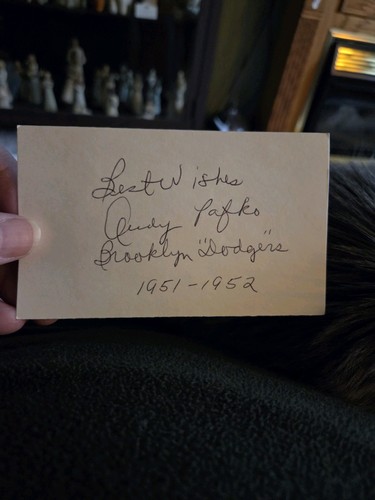 Best Wishes
Andy Pafko
Brooklyn "Dodgers
1951-1952